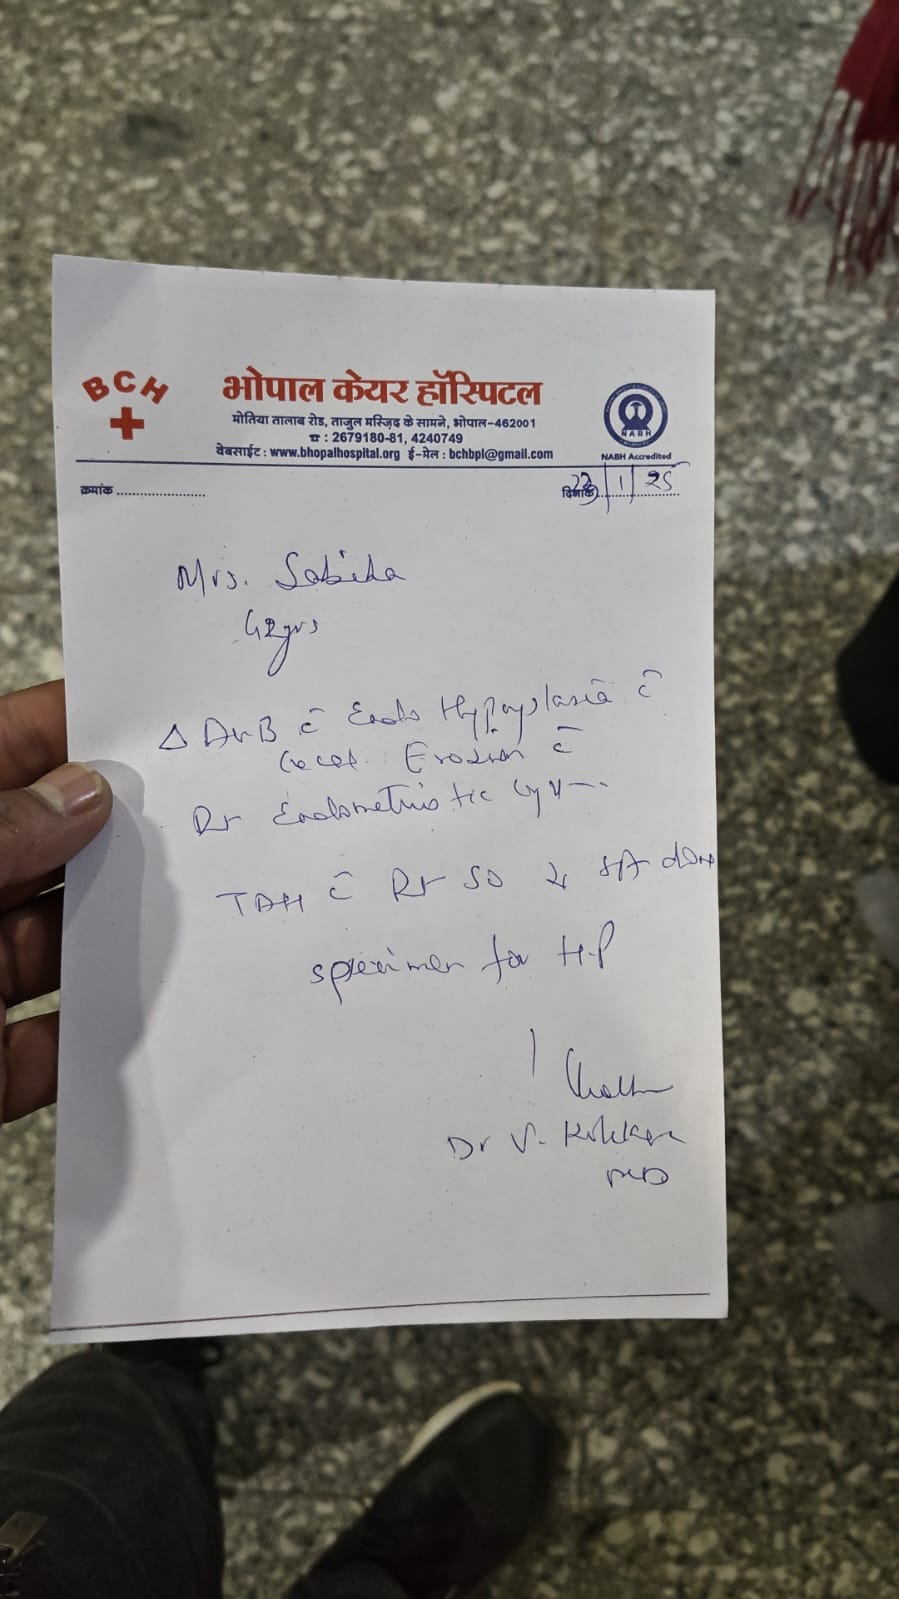 BCH
भोपाल केयर हॉस्पिटल
मोतिया तालाब रोड, ताजुल मस्जिद के सामने, भोपाल-462001
☎ : 2679180-81, 4240749
वेबसाईट : www.bhopalhospital.org ई-मेल : bchbpl@gmail.com
NABH
NABH Accredited
क्रमांक ........................
दिनांक 23/1/25
Mrs. Sabiha
42yrs
Δ AUB c̄ Endo c̄
Erosion c̄
Rt Endometriotic
TAH c̄ Rt SO done
specimen for H.P
Dr V.
MD